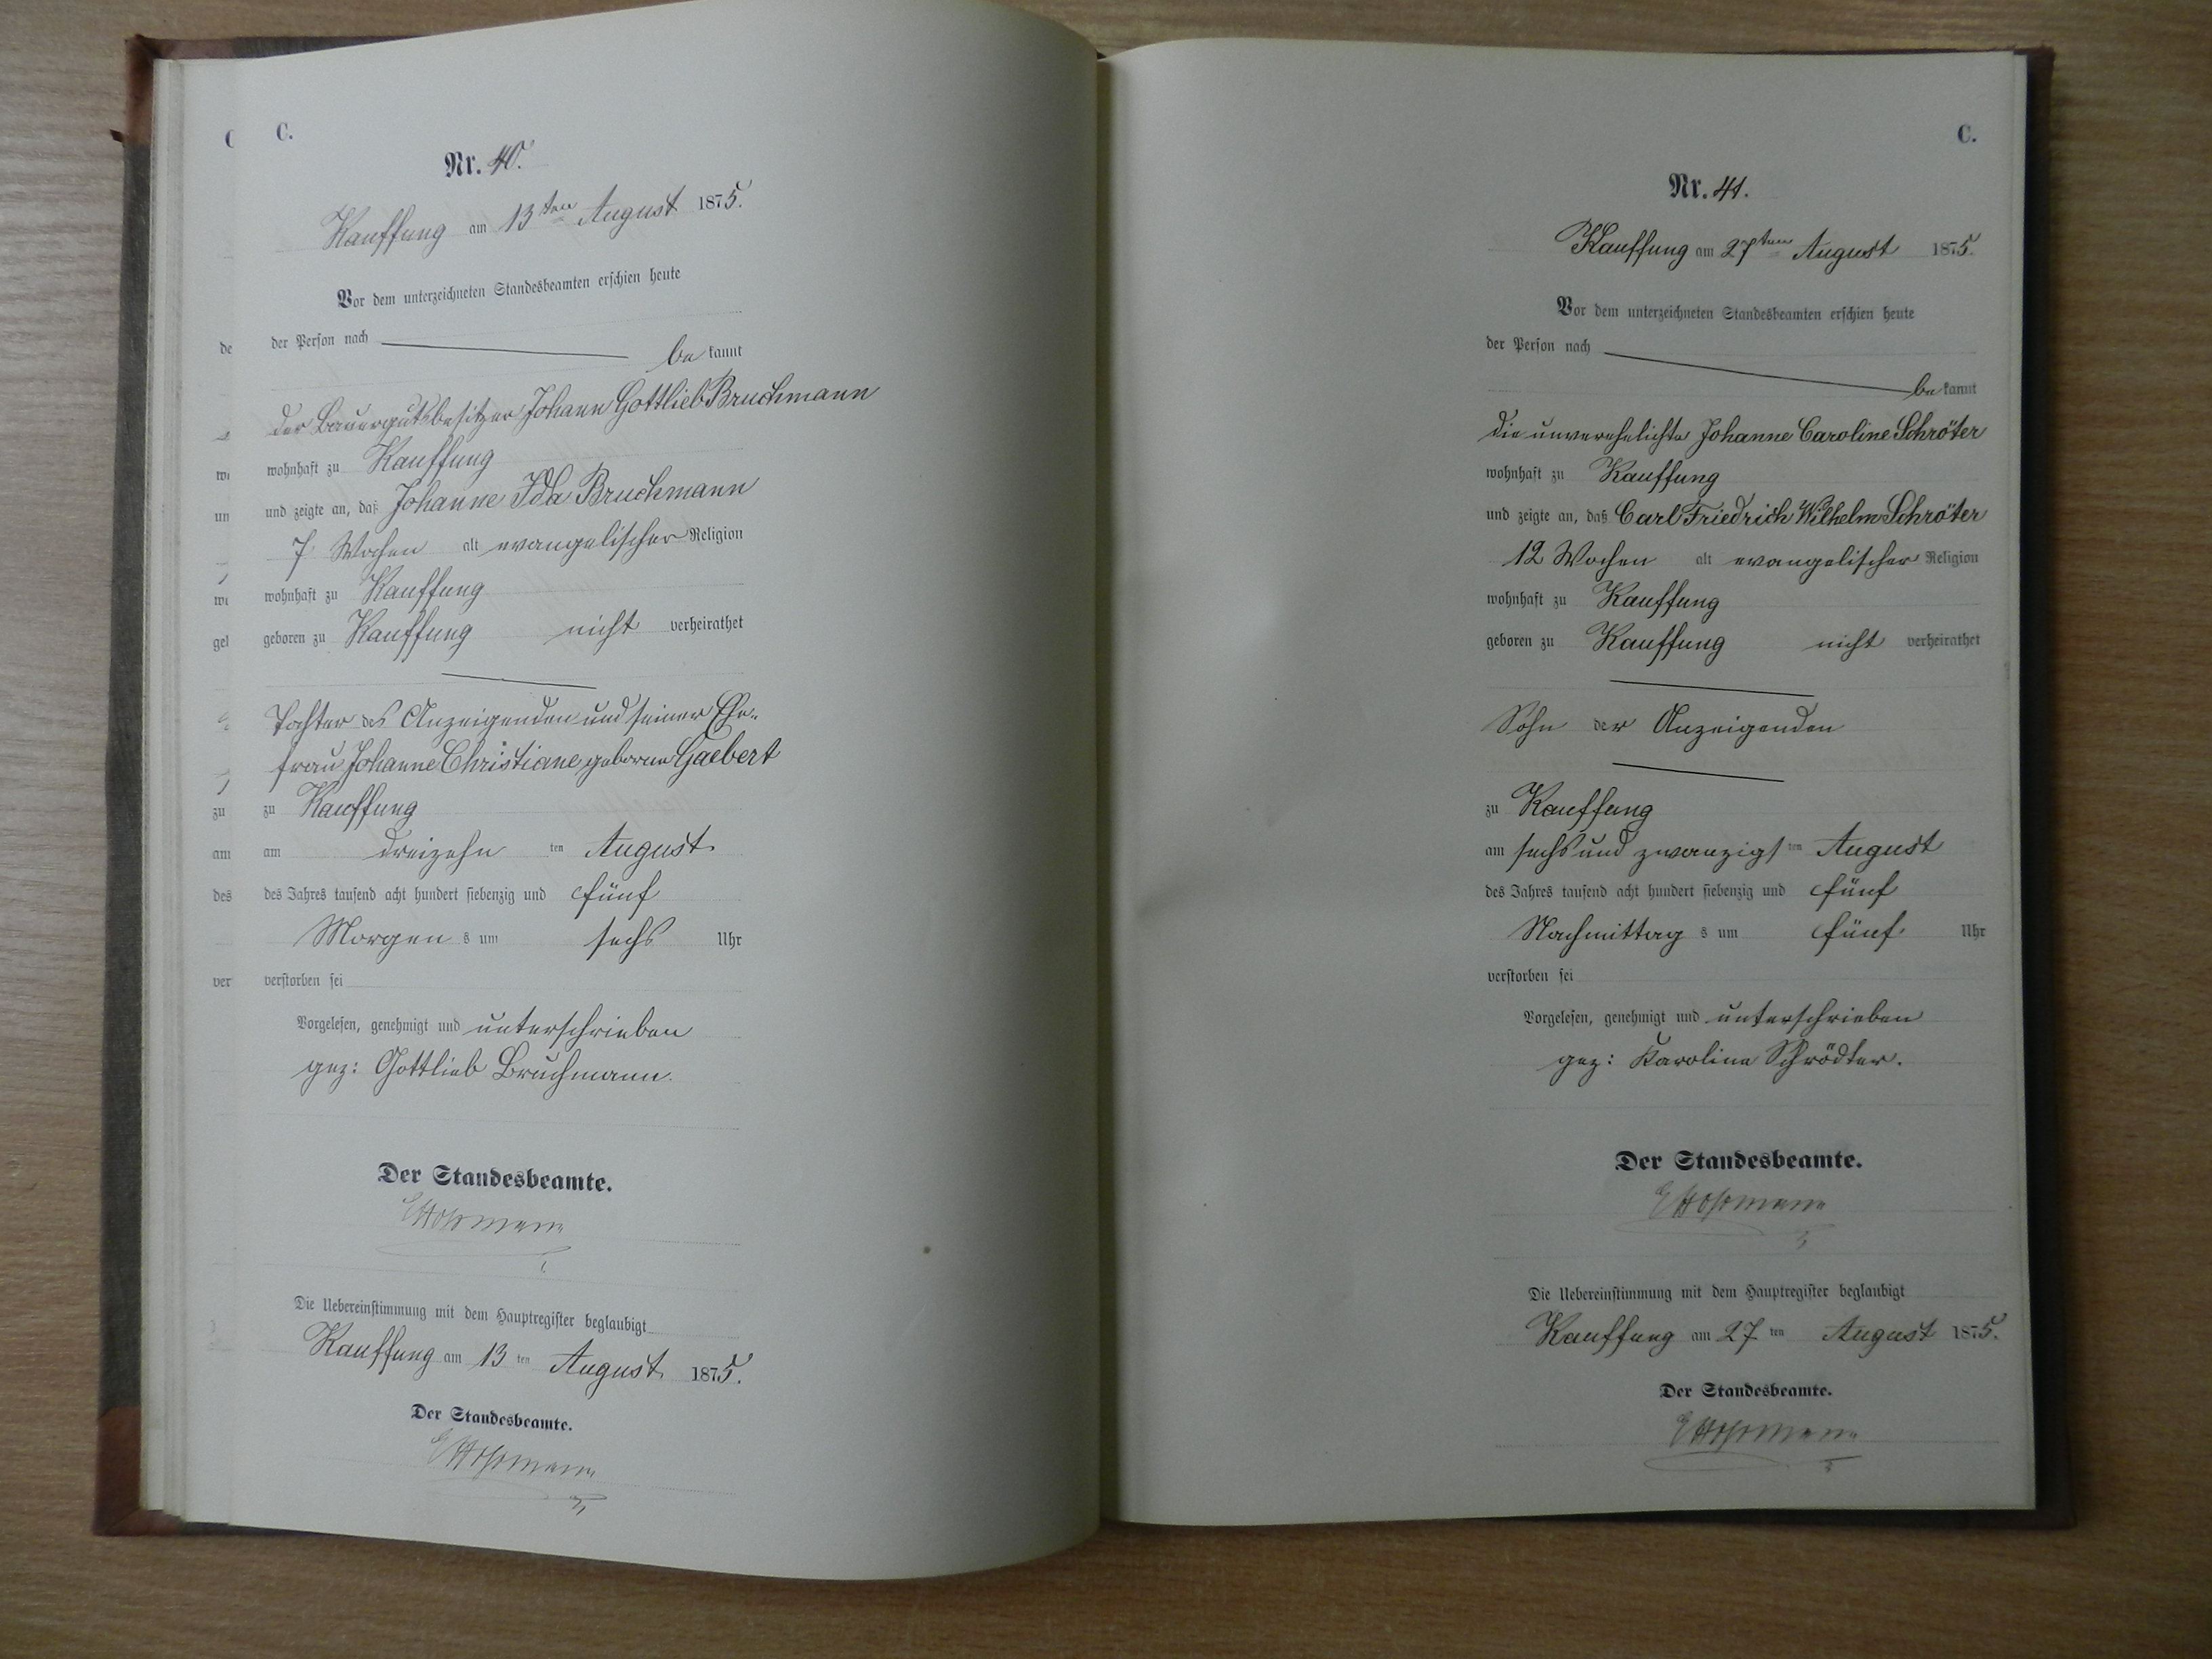 C.
Nr. 40.
Kauffung am 13ten August 1875.
Vor dem unterzeichneten Standesbeamten erschien heute
der Person nach
be kannt
der Bauergutsbesitzer Johann Gottlieb Bruchmann
wohnhaft zu Kauffung
und zeigte an, daß Johanne Ida Bruchmann
7 Wochen alt evangelischer Religion
wohnhaft zu Kauffung
geboren zu Kauffung nicht verheirathet
Tochter des Anzeigenden und seiner Ehe-
frau Johanne Christiane geborne Gaebert
zu Kauffung
am dreizehn ten August
des Jahres tausend acht hundert siebenzig und fünf
Morgen s um sechs Uhr
verstorben sei
Vorgelesen, genehmigt und unterschrieben
gez: Gottlieb Bruchmann.
Der Standesbeamte.
Die Uebereinstimmung mit dem Hauptregister beglaubigt
Kauffung am 13 ten August 1875.
Der Standesbeamte.
C.
Nr. 41.
Kauffung am 27ten August 1875.
Vor dem unterzeichneten Standesbeamten erschien heute
der Person nach
be kannt
die unverehelichte Johanne Caroline Schröter
wohnhaft zu Kauffung
und zeigte an, daß Carl Friedrich Wilhelm Schröter
12 Wochen alt evangelischer Religion
wohnhaft zu Kauffung
geboren zu Kauffung nicht verheirathet
Sohn der Anzeigenden
zu Kauffung
am sechs und zwanzigs ten August
des Jahres tausend acht hundert siebenzig und fünf
Nachmittag s um fünf Uhr
verstorben sei
Vorgelesen, genehmigt und unterschrieben
gez: Karoline Schrödter.
Der Standesbeamte.
Die Uebereinstimmung mit dem Hauptregister beglaubigt
Kauffung am 27 ten August 1875.
Der Standesbeamte.